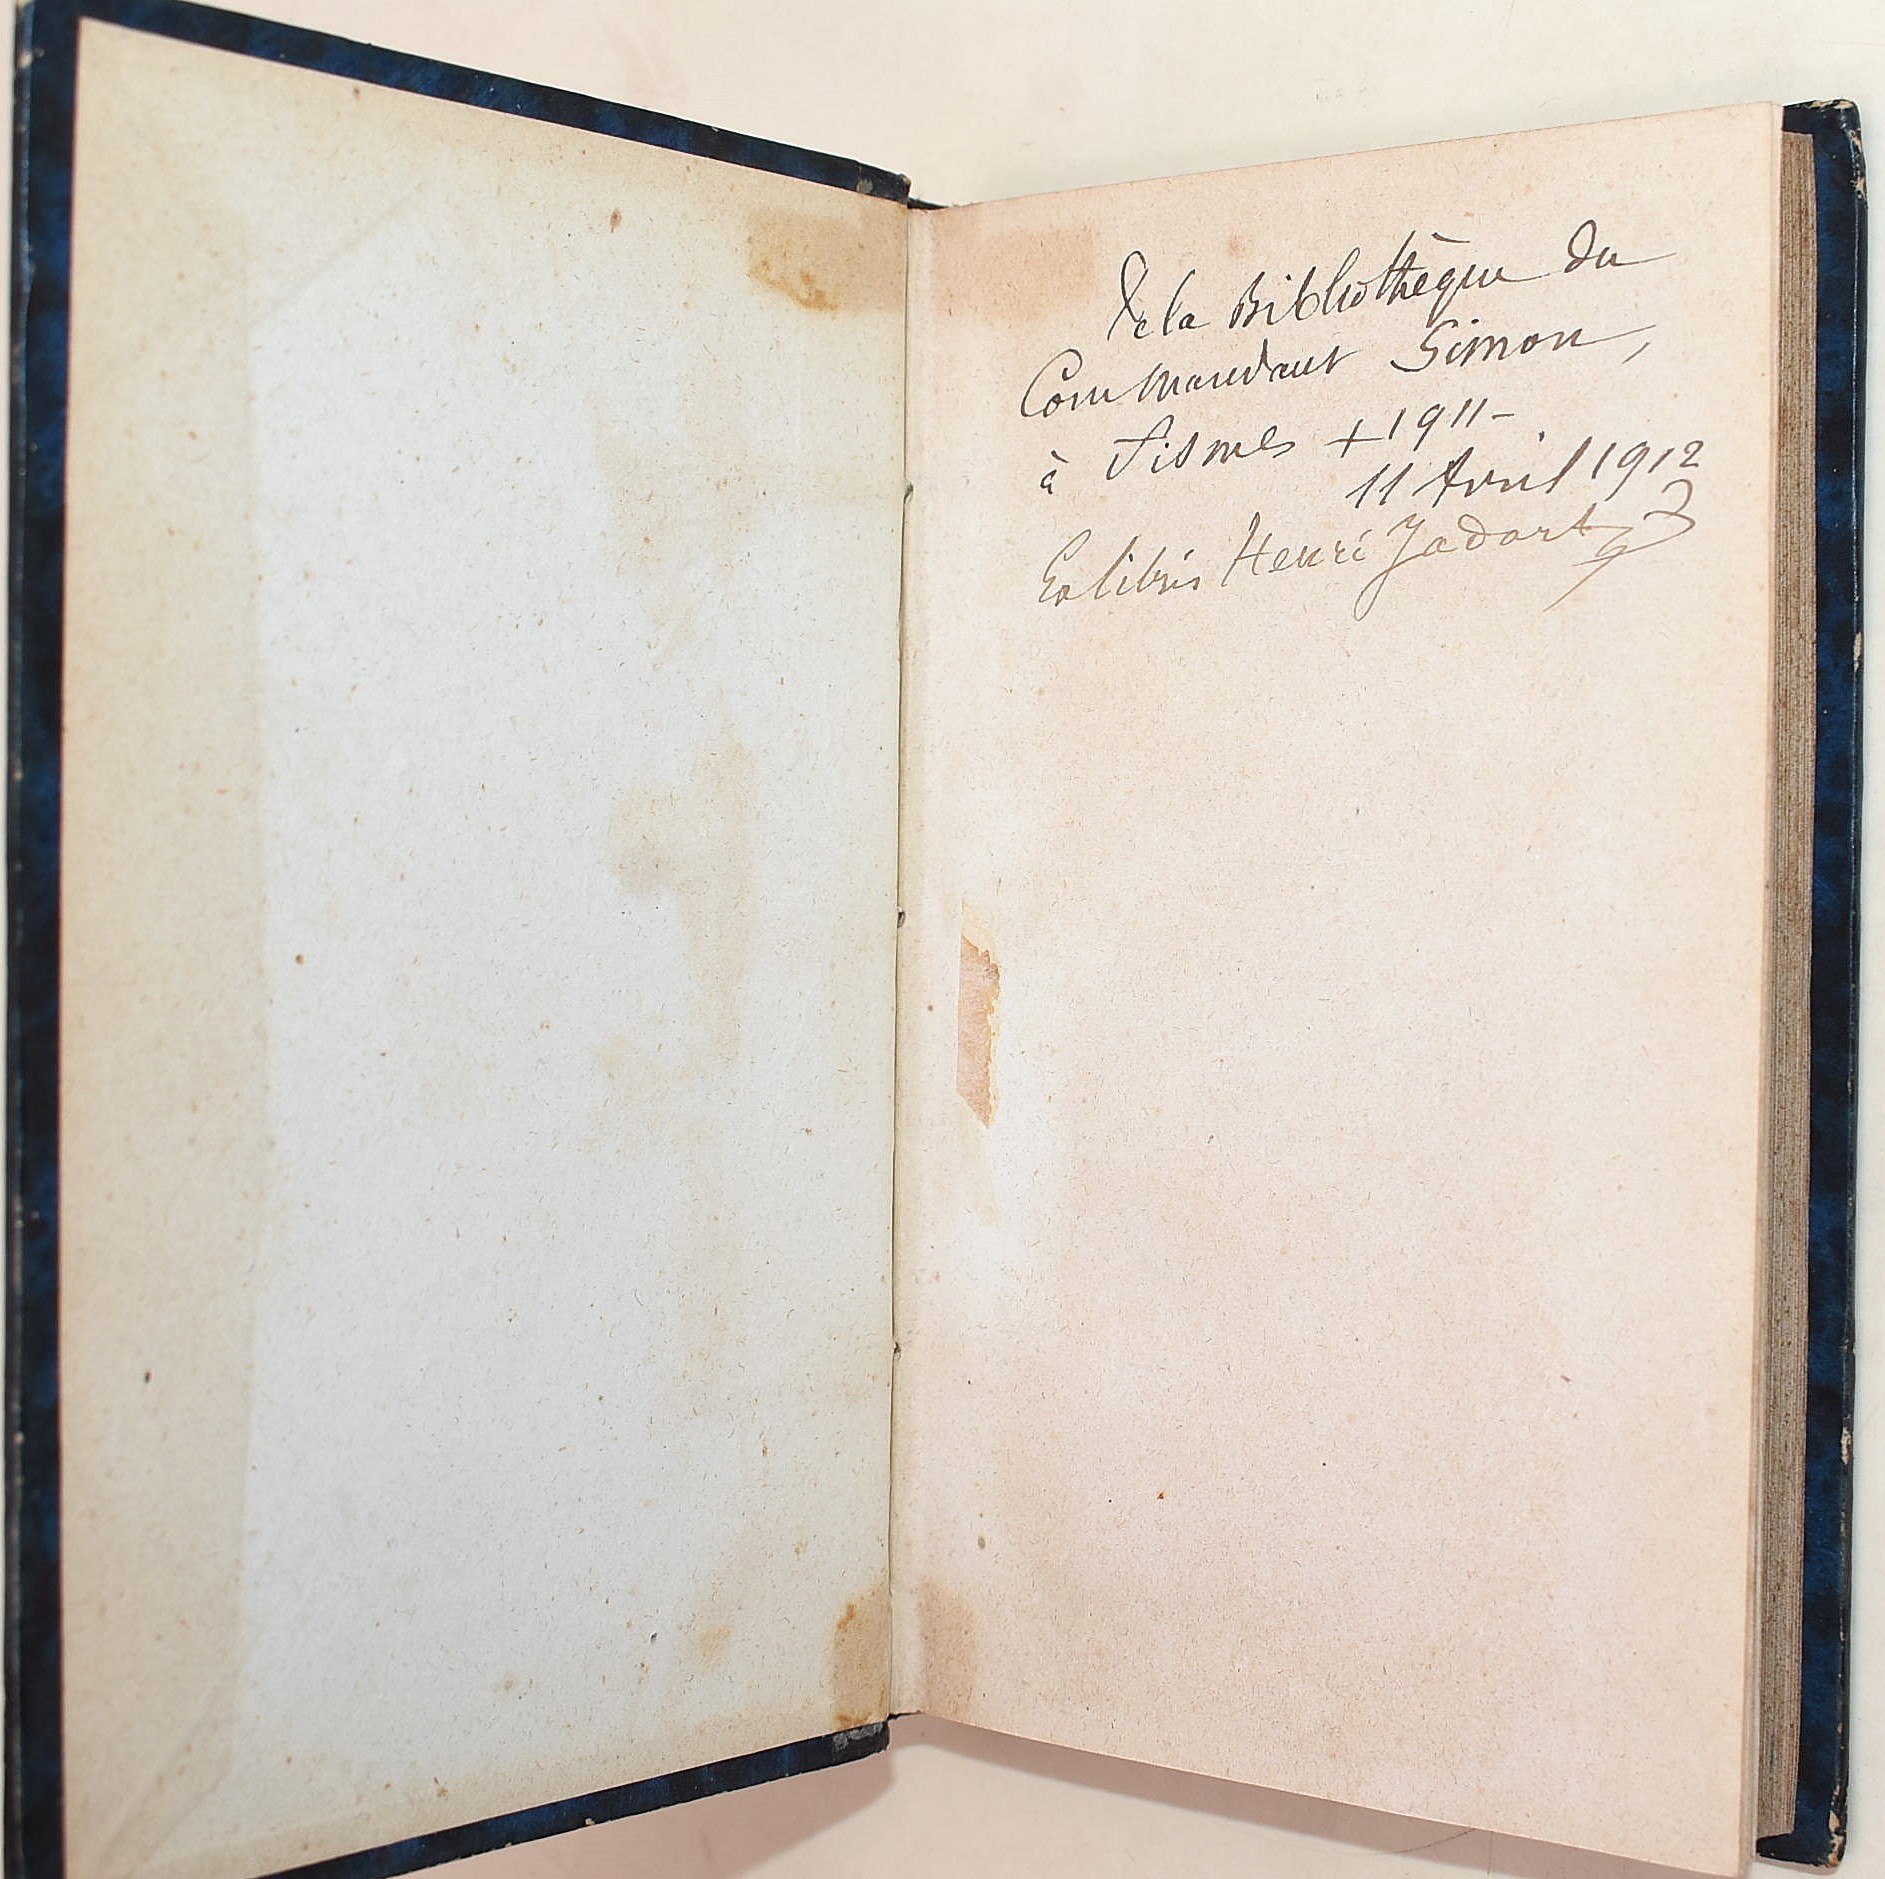 De la Bibliothèque du
Commandant Simon,
à Fismes + 1911-
11 Avril 1912
Ex libris Henri Jadart